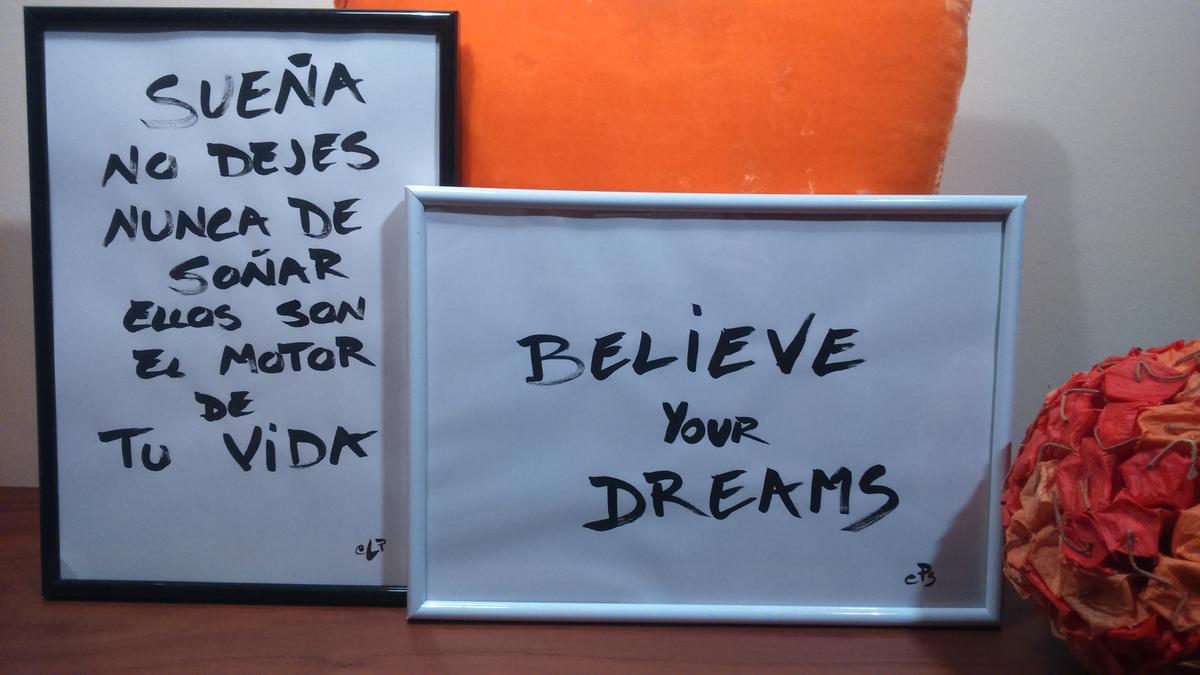 SUEÑA
NO DEJES
NUNCA DE
SOÑAR
ELLOS SON
EL MOTOR
DE
TU ViDA
BELiEVE
YOUR
DREAMS